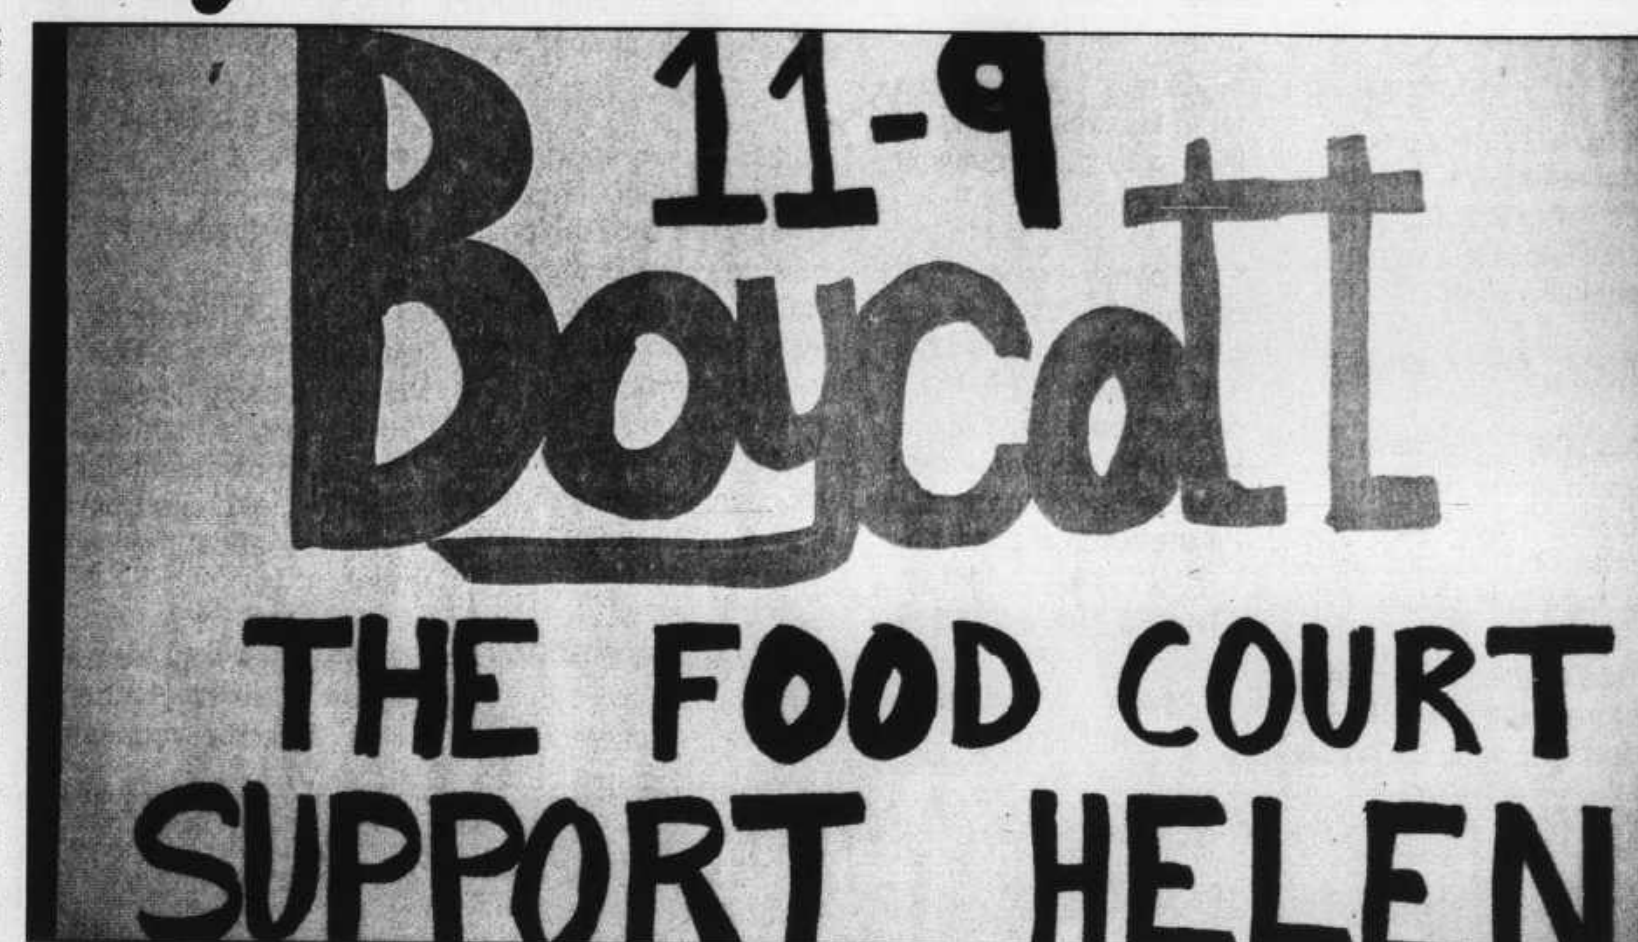 11-9
Boycott
THE FOOD COURT
SUPPORT HELEN